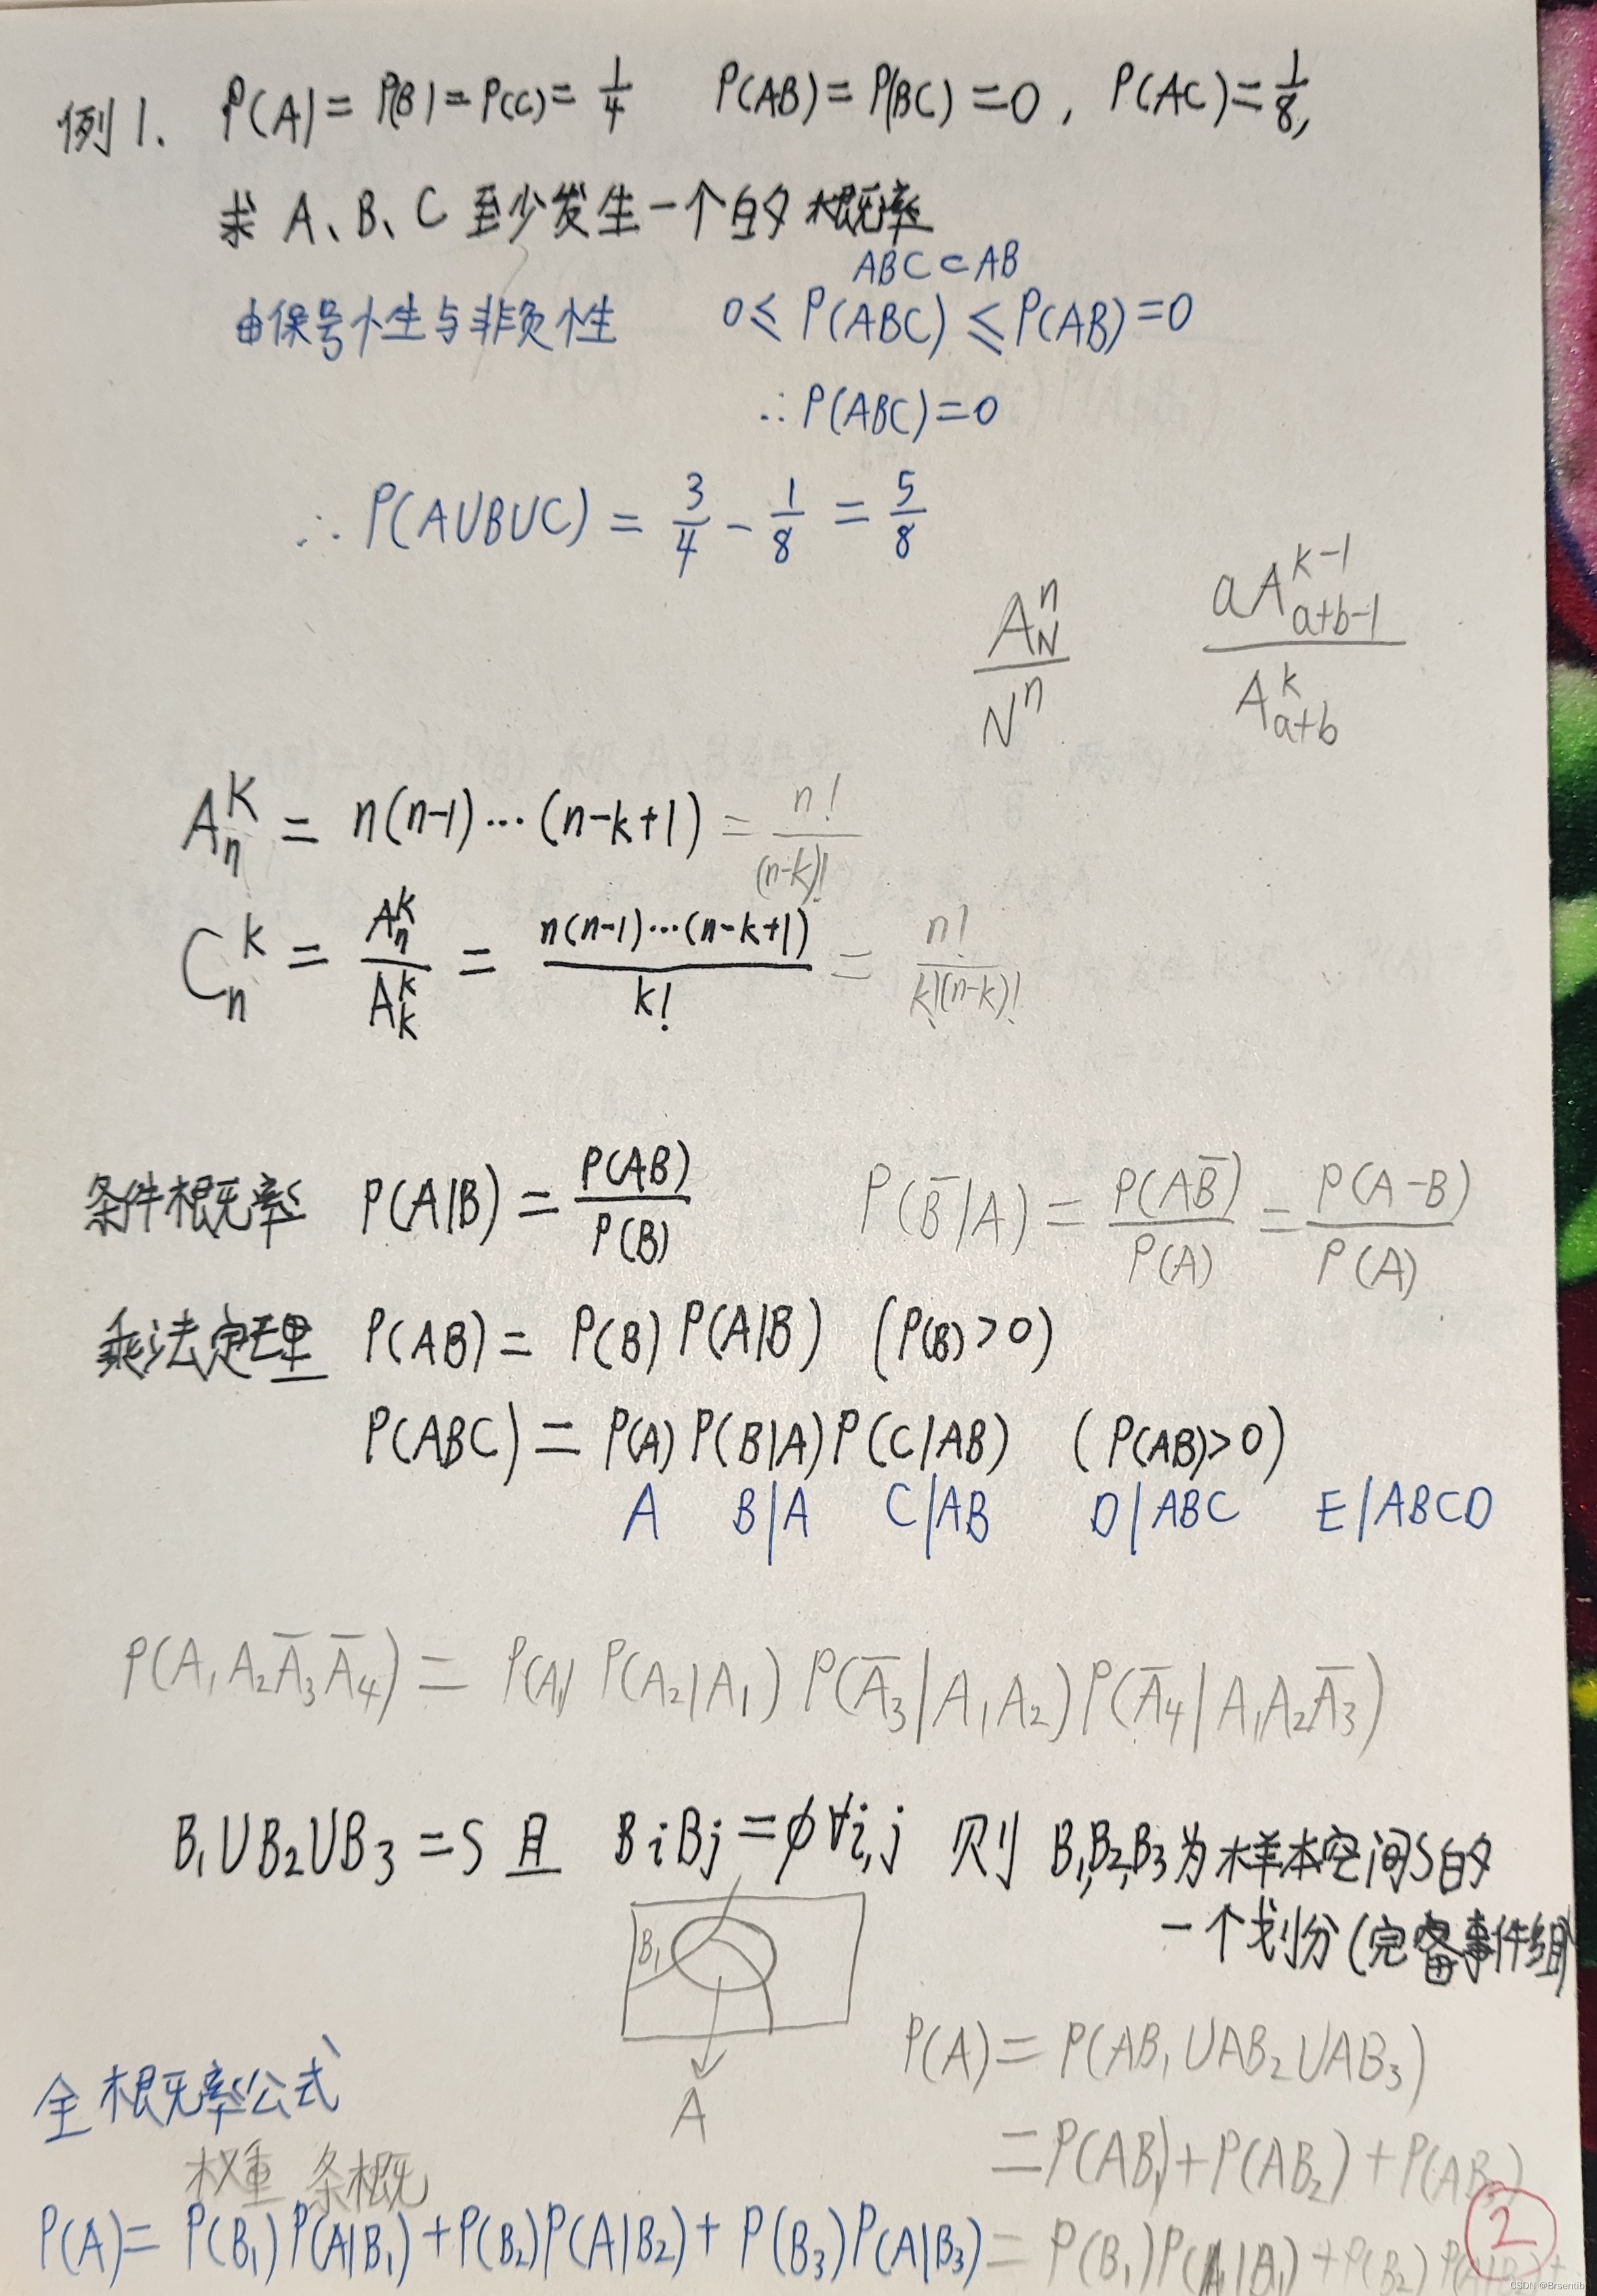 例1. P(A)=P(B)=P(C)=1/4 P(AB)=P(BC)=0, P(AC)=1/8,
求 A、B、C 至少发生一个的概率
ABC⊂AB
由保号性与非负性 0≤P(ABC)≤P(AB)=0
∴P(ABC)=0
∴P(A∪B∪C)=3/4-1/8=5/8
A_N^n/N^n aA_{a+b-1}^{k-1}/A_{a+b}^k
A_n^k=n(n-1)…(n-k+1)=n!/(n-k)!
C_n^k=A_n^k/A_k^k=n(n-1)…(n-k+1)/k!=n!/k!(n-k)!
条件概率 P(A|B)=P(AB)/P(B) P(B̅|A)=P(AB̅)/P(A)=P(A-B)/P(A)
乘法定理 P(AB)=P(B)P(A|B) (P(B)>0)
P(ABC)=P(A)P(B|A)P(C|AB) (P(AB)>0)
A B|A C|AB D|ABC E|ABCD
P(A₁A₂A̅₃A̅₄)=P(A₁)P(A₂|A₁)P(A̅₃|A₁A₂)P(A̅₄|A₁A₂A̅₃)
B₁∪B₂∪B₃=S 且 BiBj=∅ ∀i,j 则 B₁,B₂,B₃为样本空间S的
一个划分(完备事件组)
B₁
A
P(A)=P(AB₁∪AB₂∪AB₃)
全概率公式
=P(AB₁)+P(AB₂)+P(AB₃)
权重 条概
P(A)=P(B₁)P(A|B₁)+P(B₂)P(A|B₂)+P(B₃)P(A|B₃)=P(B₁)P(A|B₁)+P(B₂)P(A|B₂)+
2
CSDN @Brsentib